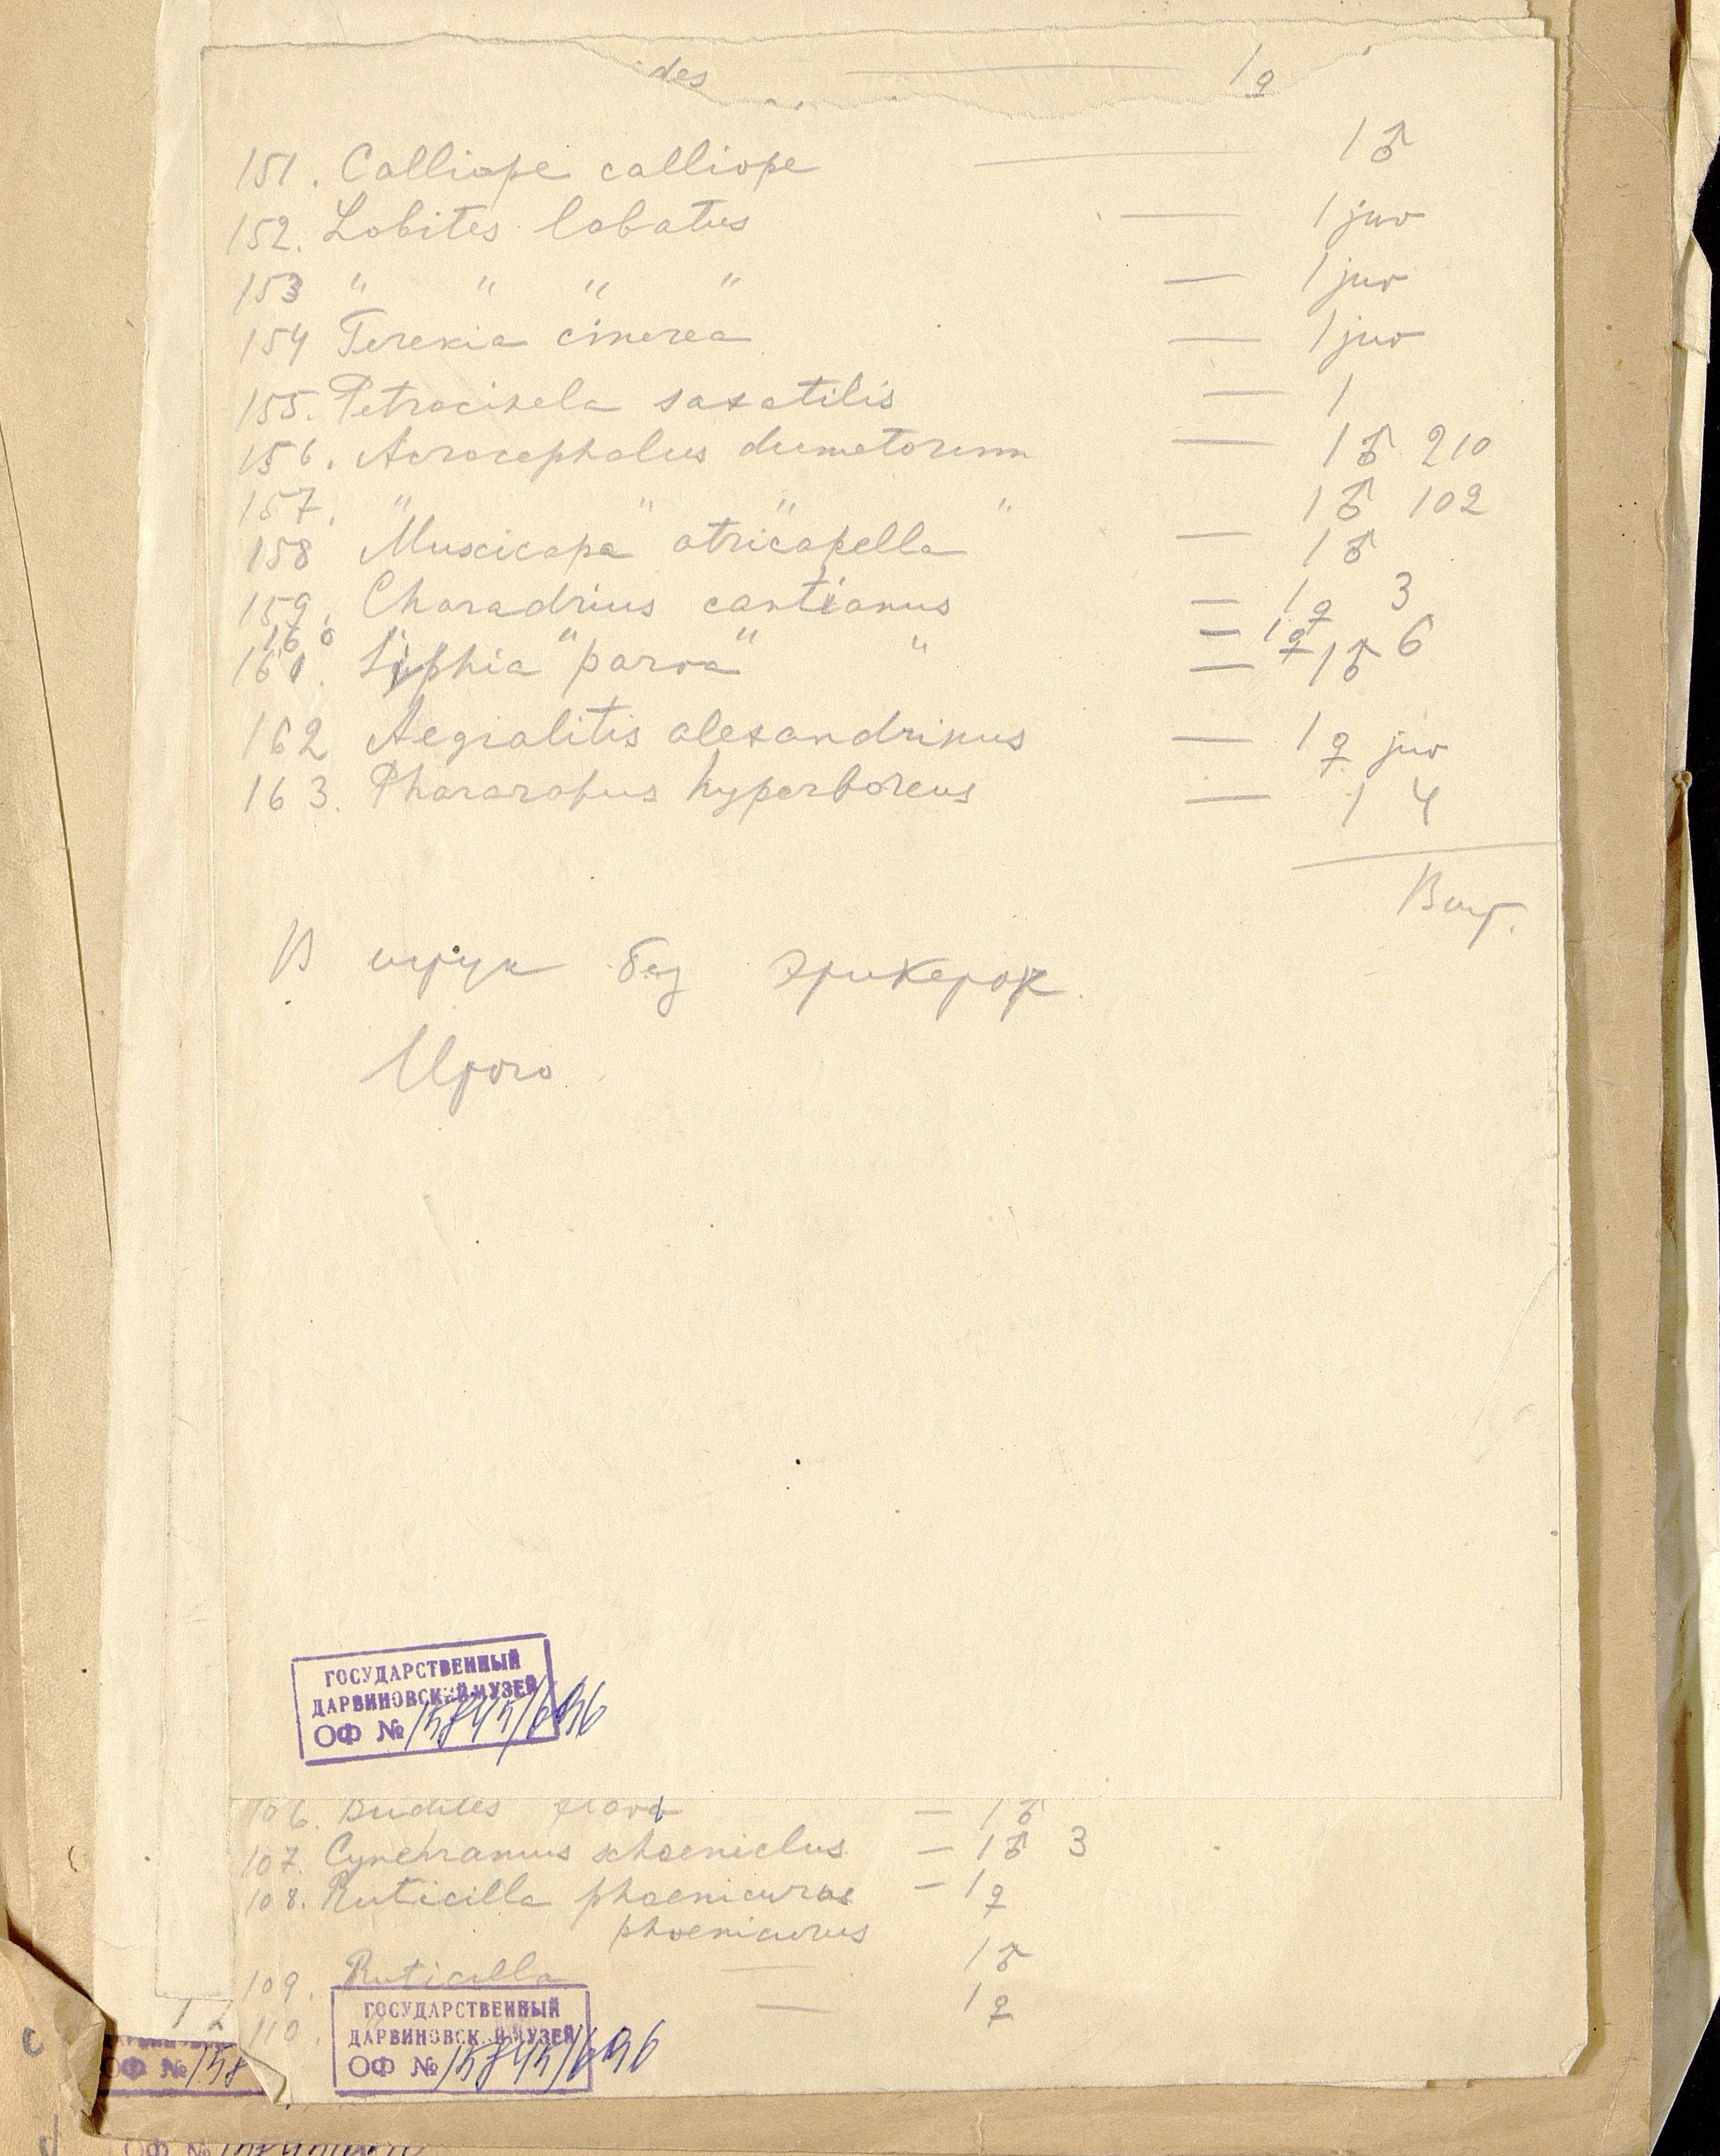 des — 1 ♀
151. Calliope calliope — 1 ♂
152. Lobites lobatus — 1 juv
153 " " " " — 1 juv
154 Terekia cinerea — 1 juv
155. Petrocikela saxatilis — 1
156. Acrocephalus dumetorum — 1 ♂ 210
157. " " " " 1 ♂ 102
158 Muscicapa atricapella — 1 ♂
159. Charadrius cantianus — 1 ♀ 3
160 " " " — 1 ♀ 6
161. Siphia parva — 1 ♂
162 Aegialitis alexandrinus — 1 ♀ juv
163. Phararopus hyperboreus — 1 4
13 шт.
13 штук без этикеток.
Итого
ГОСУДАРСТВЕННЫЙ
ДАРВИНОВСКИЙ МУЗЕЙ
ОФ № 15845/696
106. Budites flava — 1 ♂
107. Cynchramus schoeniclus — 1 ♂ 3
108. Ruticilla phoenicurus — 1 ♀
phoenicurus
109. Ruticilla — 1 ♂
110. — 1 ♀
ГОСУДАРСТВЕННЫЙ
ДАРВИНОВСКИЙ МУЗЕЙ
ОФ № 15845/696
ОФ № 158
ОФ №